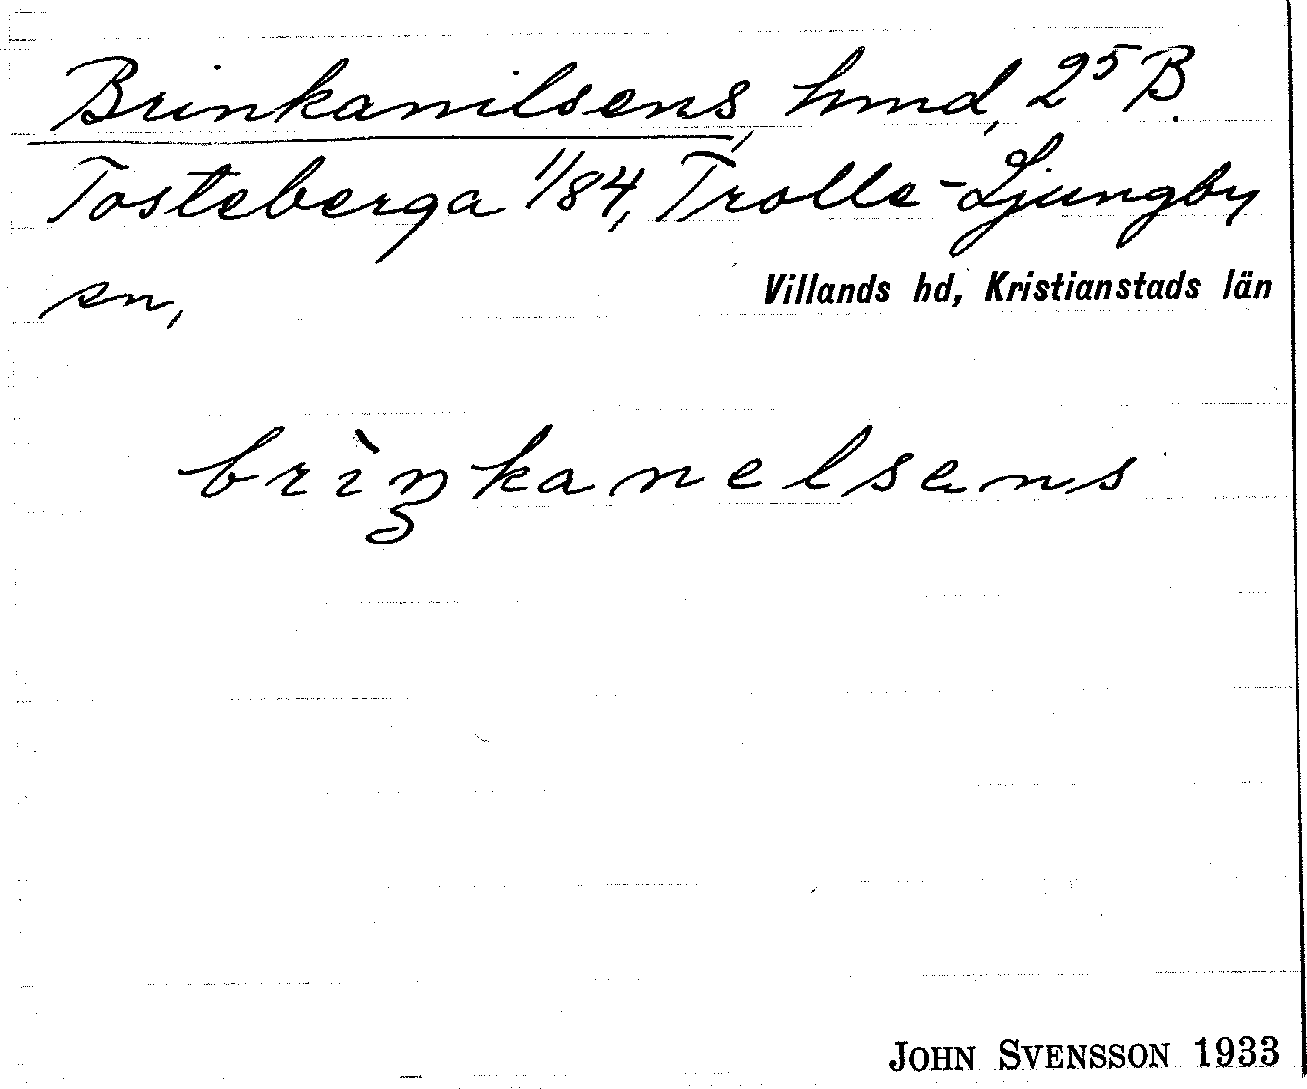 Brinkanilsens, hmd, 25 B.
Tosteberga 1/84, Trolle-Ljungby
sn,
Villands hd, Kristianstads län
brìŋkanelsens
JOHN SVENSSON 1933